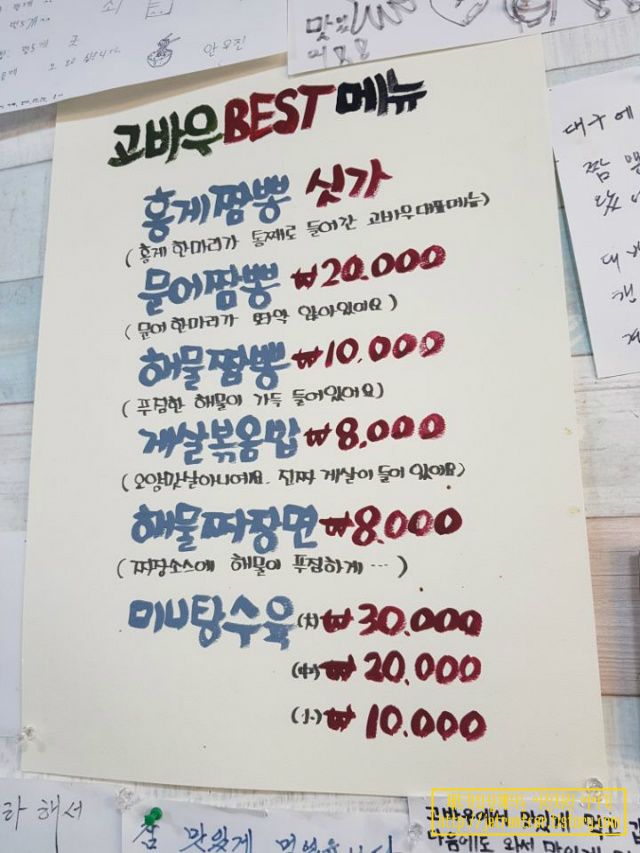 고바우 BEST 메뉴
홍게짬뽕 싯가
(홍게 한마리가 통째로 들어간 고바우 대표메뉴)
문어짬뽕 ₩20.000
(문어 한마리가 똬악 앉아있어요)
해물짬뽕 ₩10.000
(푸짐한 해물이 가득 들어있어요)
게살볶음밥 ₩8.000
(오양맛살아니예요. 진짜 게살이 들어 있어요)
해물짜장면 ₩8.000
(짜장소스에 해물이 푸짐하게 …)
미니탕수육 (大) ₩30.000
(中) ₩20.000
(小) ₩10.000
안유진
맛있
대구에
짬뽕
라 해서
참 맛있게
고바우에서 맛있게
다음에도 와서 맛있게